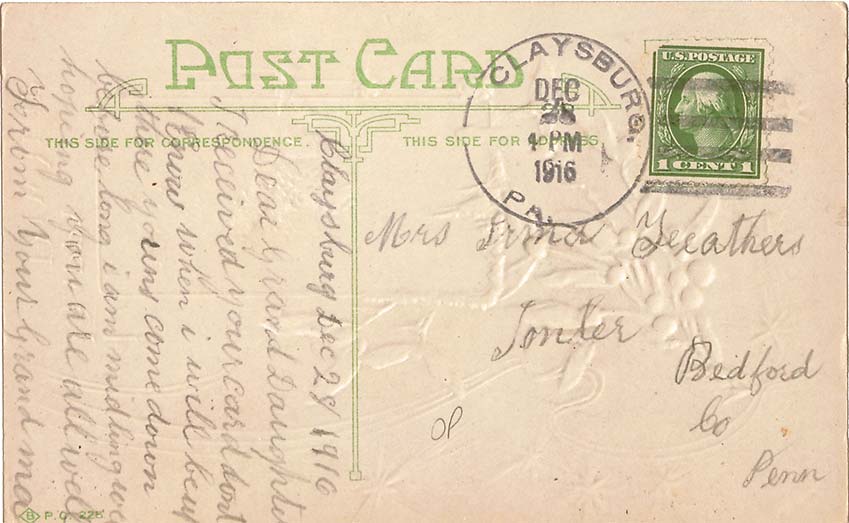 POST CARD
THIS SIDE FOR CORRESPONDENCE. THIS SIDE FOR ADDRESS.
CLAYSBURG,
DEC
28
4-PM
1916
PA.
U.S. POSTAGE
1 CENT 1
Claysburg Dec 28 1916
Dear Grand Daughte
I Received your card dont
know when i will be up
there youins come down
before long i am midling we
hoping you are all wel
From Your Grand ma
Mrs Irma Feathers
Bedford
Co
Penn
OP
B P.C. 225